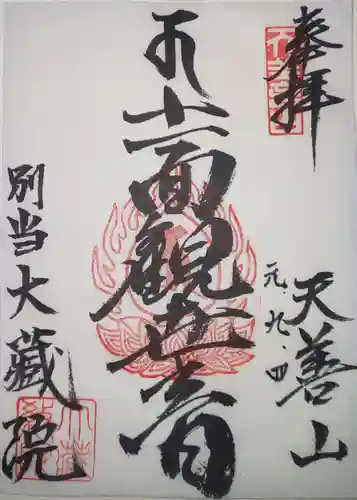 奉拝
天善山
元.九.四
十一面観世音
別当大藏院